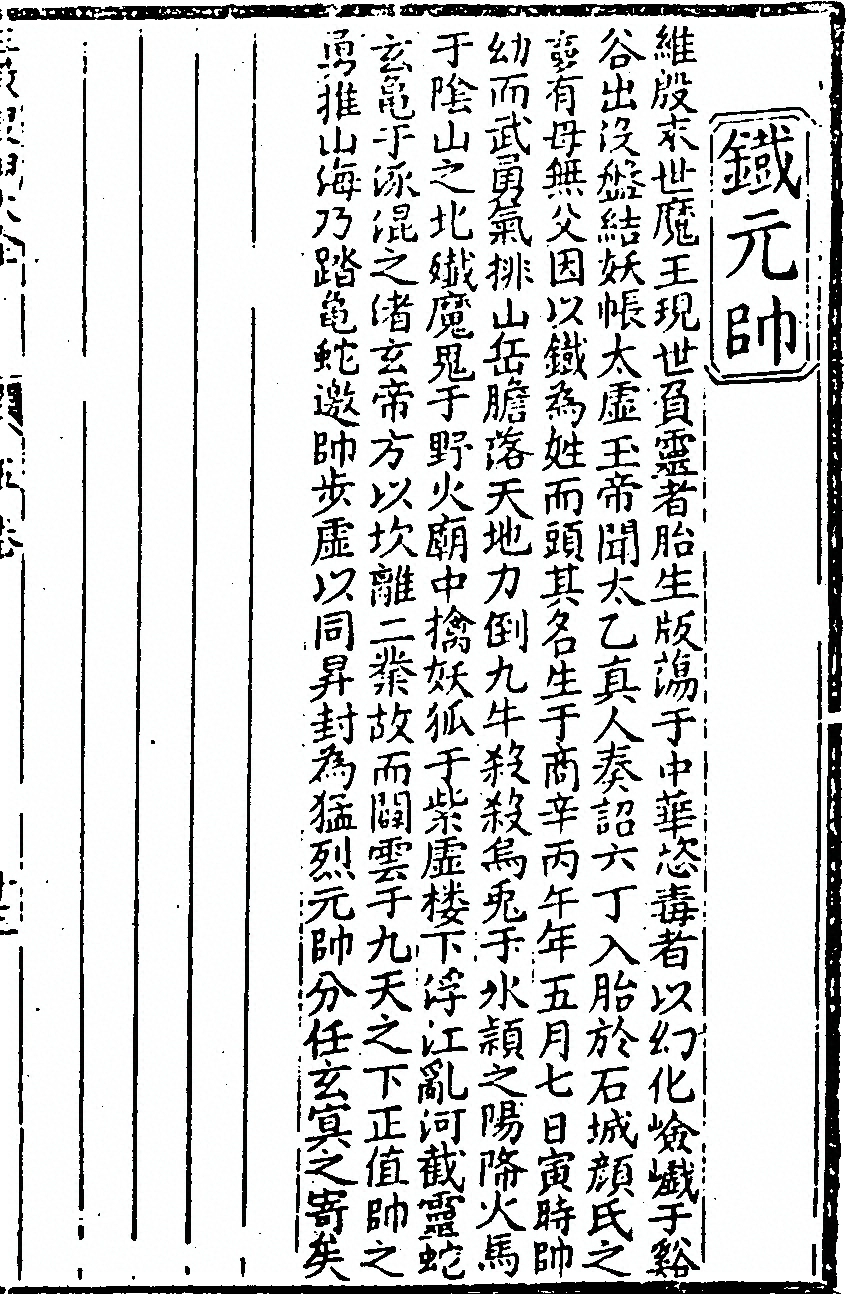 鐵元帥
維殷末世魔王現世負靈者胎生版蕩于中華恣毒者以幻化嶮巇于谿
谷出沒盤結妖帳太虛玉帝聞太乙真人奏詔六丁入胎於石城顏氏之
有母無父因以鐵為姓而頭其名生于商辛丙午年五月七日寅時帥
幼而武勇氣排山岳膽落天地力倒九牛殺殺烏兎于水頴之陽降火馬
于陰山之北殲魔鬼于野火廟中擒妖狐于紫虛楼下浮江亂河截靈蛇
玄龜于涿混之渚玄帝方以坎離二業故而闢雲于九天之下正值帥之
勇推山海乃踏龜蛇邀帥步虛以同昇封為猛烈元帥分任玄冥之寄矣